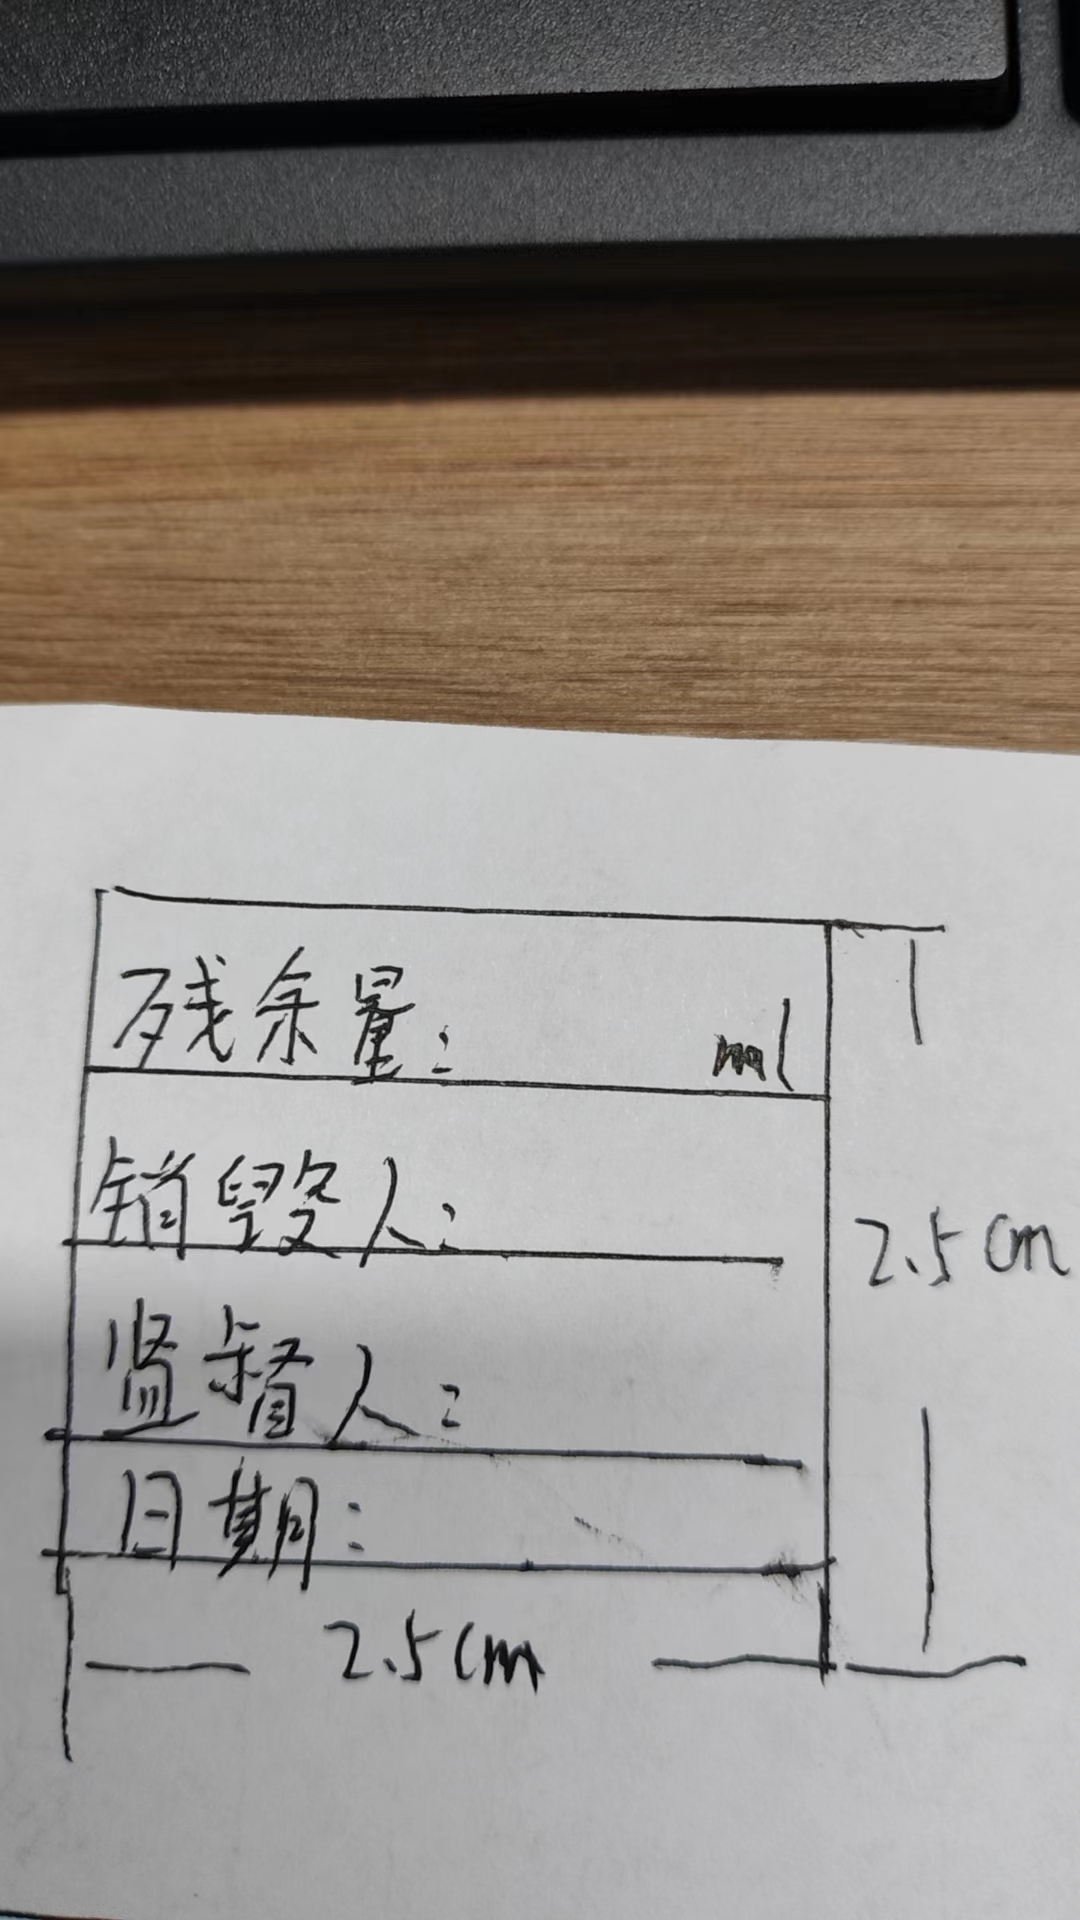 残余量: ml
销毁人:
2.5cm
监督人:
日期:
2.5cm